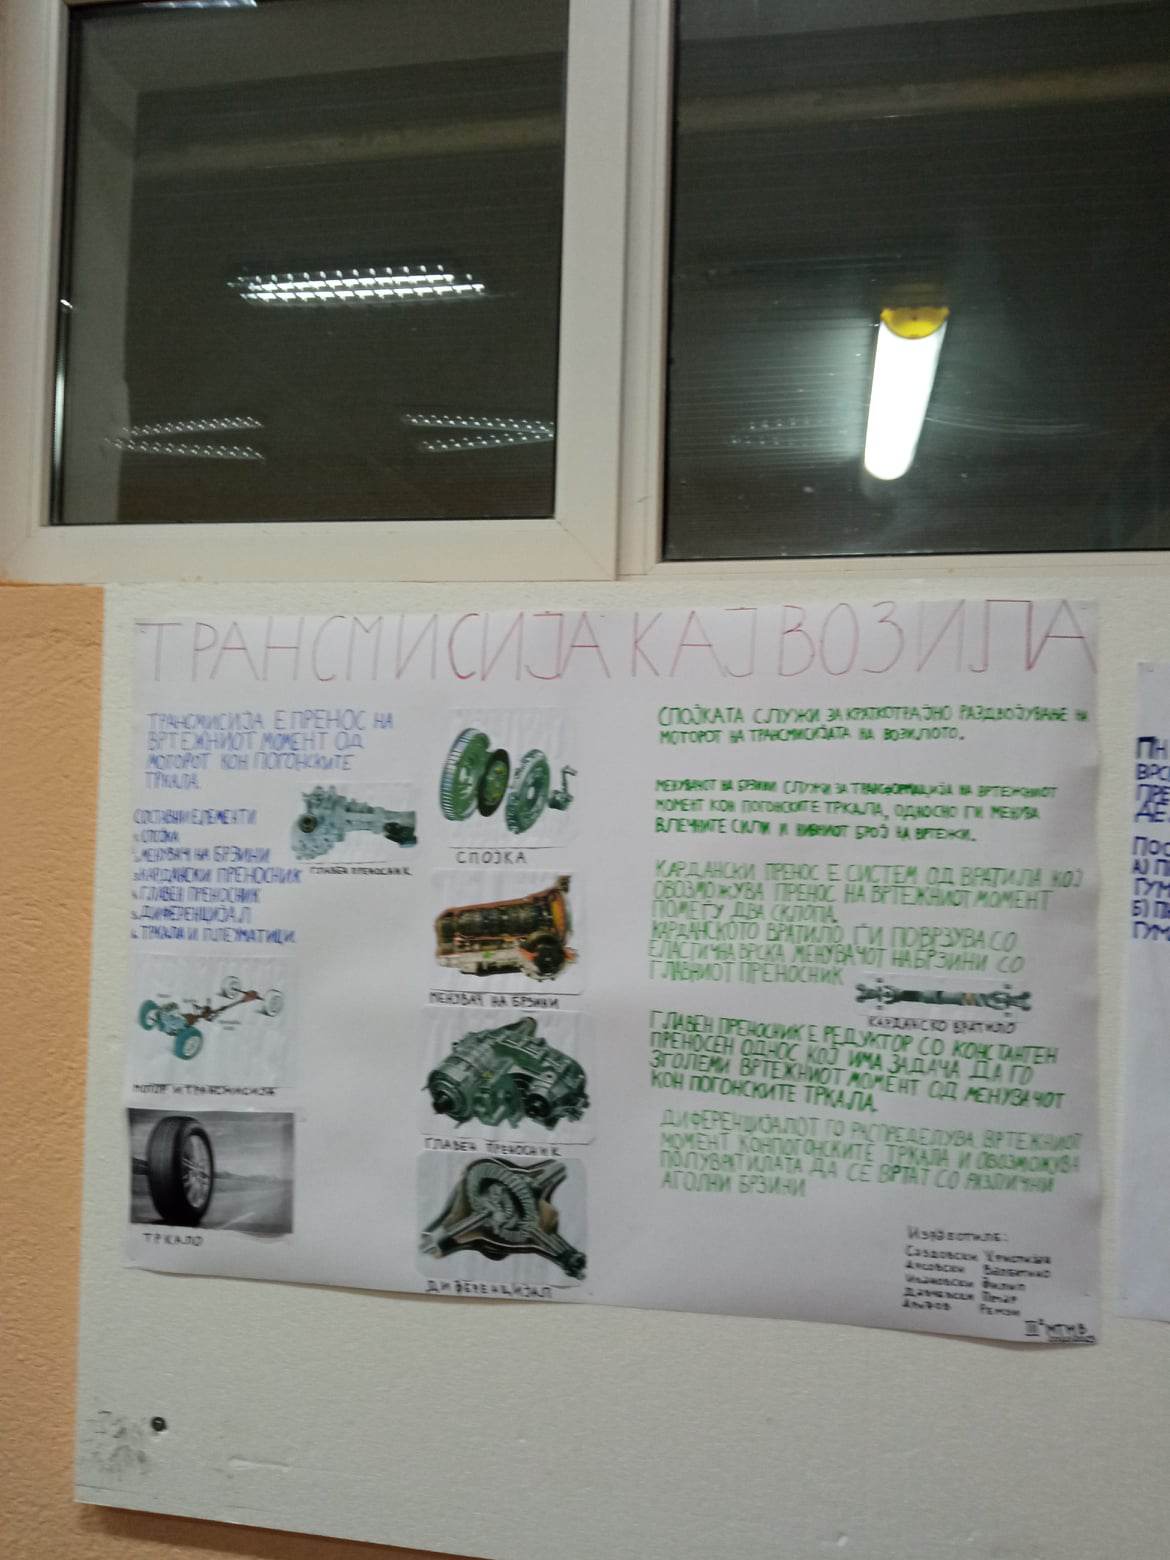 ТРАНСМИСИЈА КАЈ ВОЗИЛА
ТРАНСМИСИЈА Е ПРЕНОС НА
ВРТЕЖНИОТ МОМЕНТ ОД
МОТОРОТ КОН ПОГОНСКИТЕ
ТРКАЛА.
СОСТАВНИ ЕЛЕМЕНТИ
1. СПОЈКА
2. МЕНУВАЧ НА БРЗИНИ
3. КАРДАНСКИ ПРЕНОСНИК
4. ГЛАВЕН ПРЕНОСНИК
5. ДИФЕРЕНЦИЈАЛ
6. ТРКАЛА И ПНЕУМАТИЦИ
ГЛАВЕН ПРЕНОСНИК
МОТОР И ТРАНСМИСИЈА
ТРКАЛО
СПОЈКА
МЕНУВАЧ НА БРЗИНИ
ГЛАВЕН ПРЕНОСНИК
ДИФЕРЕНЦИЈАЛ
СПОЈКАТА СЛУЖИ ЗА КРАТКОТРАЈНО РАЗДВОЈУВАЊЕ НА
МОТОРОТ НА ТРАНСМИСИЈАТА НА ВОЗИЛОТО.
МЕНУВАЧОТ НА БРЗИНИ СЛУЖИ ЗА ТРАНСФОРМАЦИЈА НА ВРТЕЖНИОТ
МОМЕНТ КОН ПОГОНСКИТЕ ТРКАЛА, ОДНОСНО ГИ МЕНУВА
ВЛЕЧНИТЕ СИЛИ И НИВНИОТ БРОЈ НА ВРТЕЖИ.
КАРДАНСКИ ПРЕНОС Е СИСТЕМ ОД ВРАТИЛА КОЈ
ОВОЗМОЖУВА ПРЕНОС НА ВРТЕЖНИОТ МОМЕНТ
ПОМЕГУ ДВА СКЛОПА.
КАРДАНСКОТО ВРАТИЛО ГИ ПОВРЗУВА СО
ЕЛАСТИЧНА ВРСКА МЕНУВАЧОТ НА БРЗИНИ СО
ГЛАВНИОТ ПРЕНОСНИК
КАРДАНСКО ВРАТИЛО
ГЛАВЕН ПРЕНОСНИК Е РЕДУКТОР СО КОНСТАНТЕН
ПРЕНОСЕН ОДНОС КОЈ ИМА ЗАДАЧА ДА ГО
ЗГОЛЕМИ ВРТЕЖНИОТ МОМЕНТ ОД МЕНУВАЧОТ
КОН ПОГОНСКИТЕ ТРКАЛА.
ДИФЕРЕНЦИЈАЛОТ ГО РАСПРЕДЕЛУВА ВРТЕЖНИОТ
МОМЕНТ КОН ПОГОНСКИТЕ ТРКАЛА И ОВОЗМОЖУВА
ПОЛУВРАТИЛАТА ДА СЕ ВРТАТ СО РАЗЛИЧНИ
АГОЛНИ БРЗИНИ
Изработиле:
Ивановски Филип
Петар